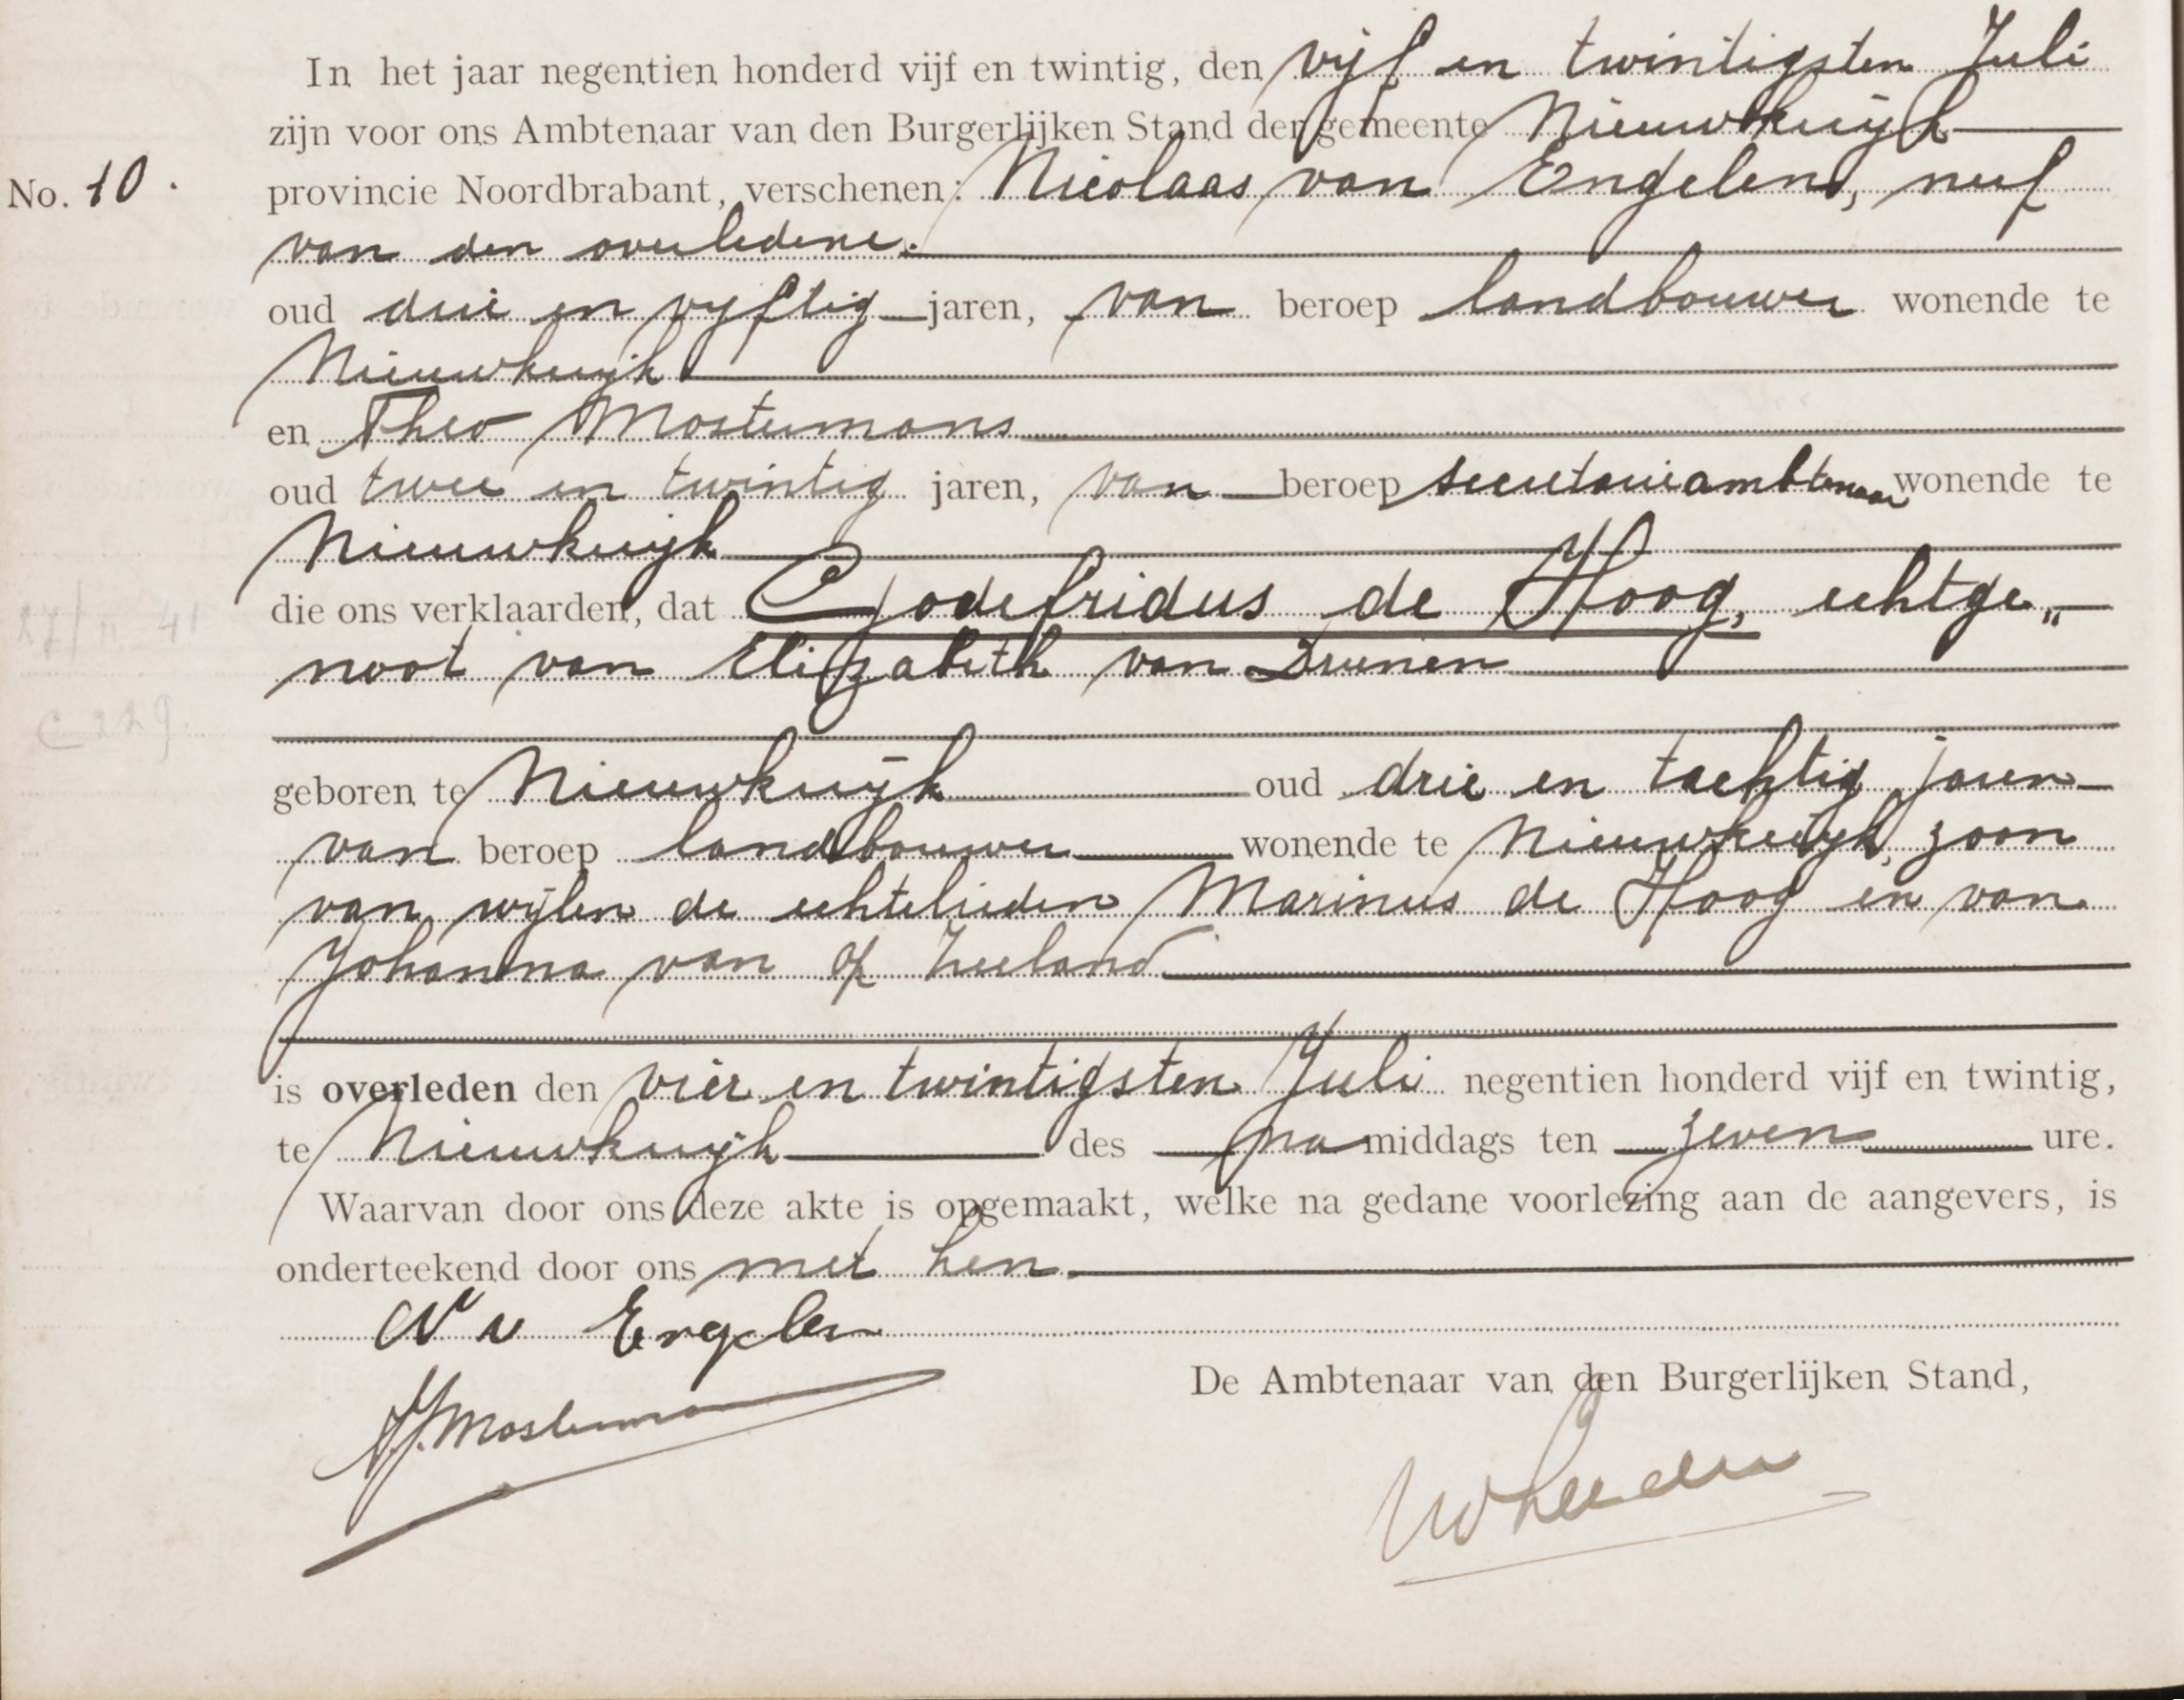 In het jaar negentien honderd vijf en twintig, den vijf en twintigsten Juli
zijn voor ons Ambtenaar van den Burgerlijken Stand der gemeente Nieuwkuijk
No. 10. provincie Noordbrabant, verschenen: Nicolaas van Engelen, neef
van den overledene.
oud drie en vyftig jaren, van beroep landbouwer wonende te
Nieuwkuijk
en Theo Mostermans
oud twee en twintig jaren, van beroep secretarieambtenaar wonende te
Nieuwkuijk
die ons verklaarden, dat Godefridus de Hoog, echtge„
noot van Elizabeth van Drunen
geboren te Nieuwkuijk oud drie en tachtig jaren
van beroep landbouwer wonende te Nieuwkuijk, zoon
van wijlen de echtelieden Marinus de Hoog en van
Johanna van op Zeeland
is overleden den vier en twintigsten Juli negentien honderd vijf en twintig,
te Nieuwkuijk des na middags ten zeven ure.
Waarvan door ons deze akte is opgemaakt, welke na gedane voorlezing aan de aangevers, is
onderteekend door ons met hen.
N v Engelen
De Ambtenaar van den Burgerlijken Stand,
Mostermans